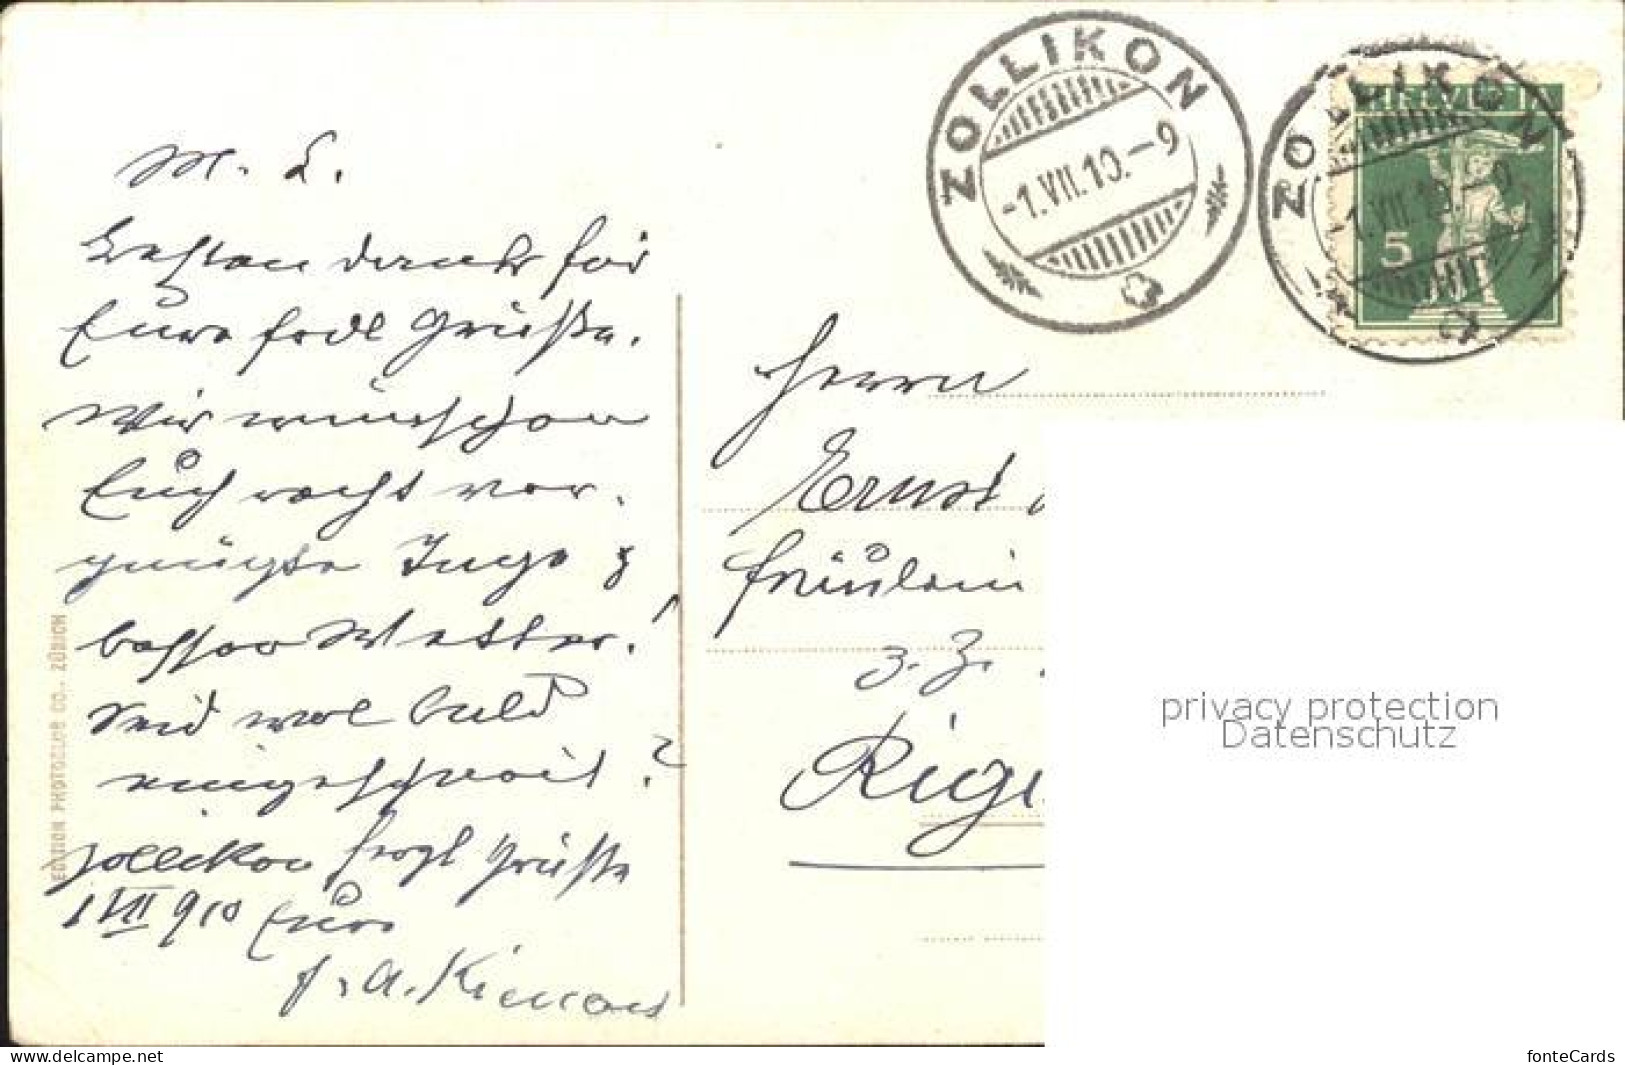 ZOLLIKON
-1.VII.10.-9
ZOLLIKON
1.VII.10.-9
HELVETIA
5
M. L.
Besten Dank für
Eure frdl Grüsse.
Wir wünschen
Euch recht ver-
gnügte Tage &
besser Wetter!
Seid wol bald
eingeschneit?
Zollikon herzl Grüsse
1 VII 910 Eure
Herrn
Ernst
Fräulein
z. Z.
Rigi
EDITION PHOTOGLOB CO., ZÜRICH
privacy protection
Datenschutz
https://www.delcampe.net
fonteCards